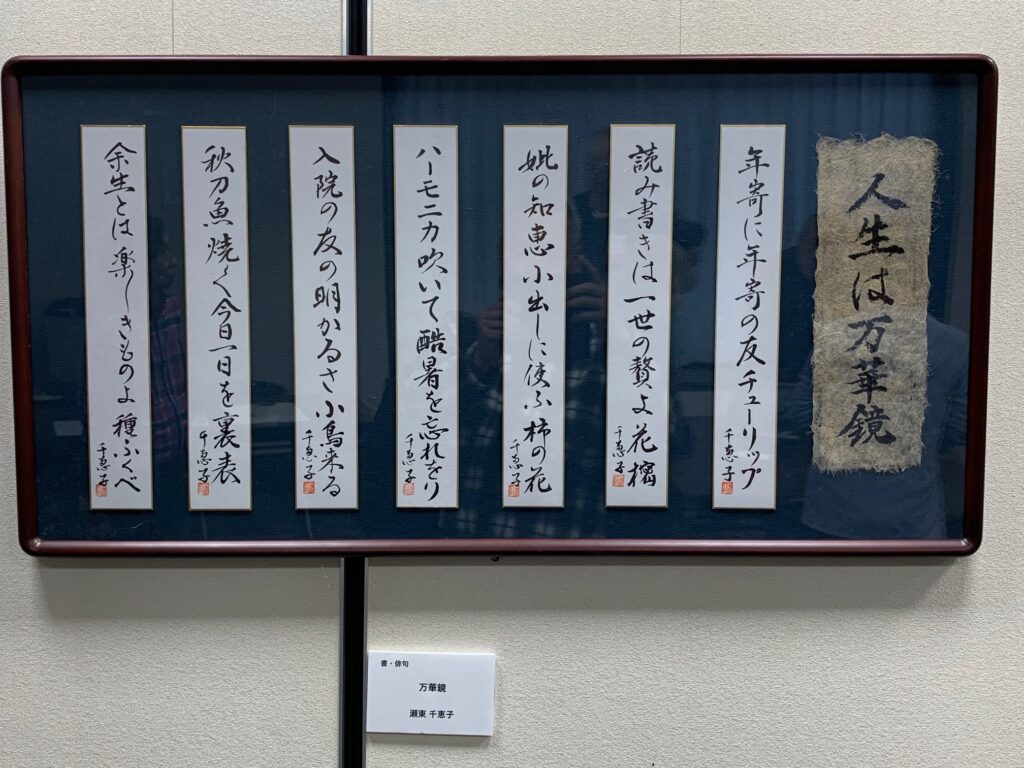 人生は万華鏡
年寄に年寄の友チューリップ
千恵子
読み書きは一世の贅よ花樒
千恵子
妣の知恵小出しに使ふ柿の花
千恵子
ハーモニカ吹いて酷暑を忘れをり
千恵子
入院の友の明かるさ小鳥来る
千恵子
秋刀魚焼く今日一日を裏表
千恵子
余生とは楽しきものよ種ふくべ
千恵子
書・俳句
万華鏡
瀬東 千恵子